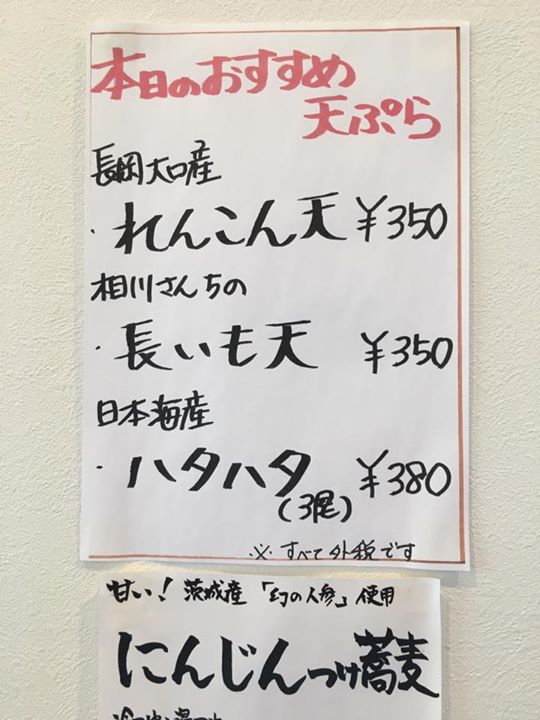 本日のおすすめ
天ぷら
長岡大口産
・れんこん天 ¥350
相川さんちの
・長いも天 ¥350
日本海産
・ハタハタ ¥380
(3尾)
※すべて外税です
甘い! 茨城産「幻の人参」使用
にんじんつけ蕎麦